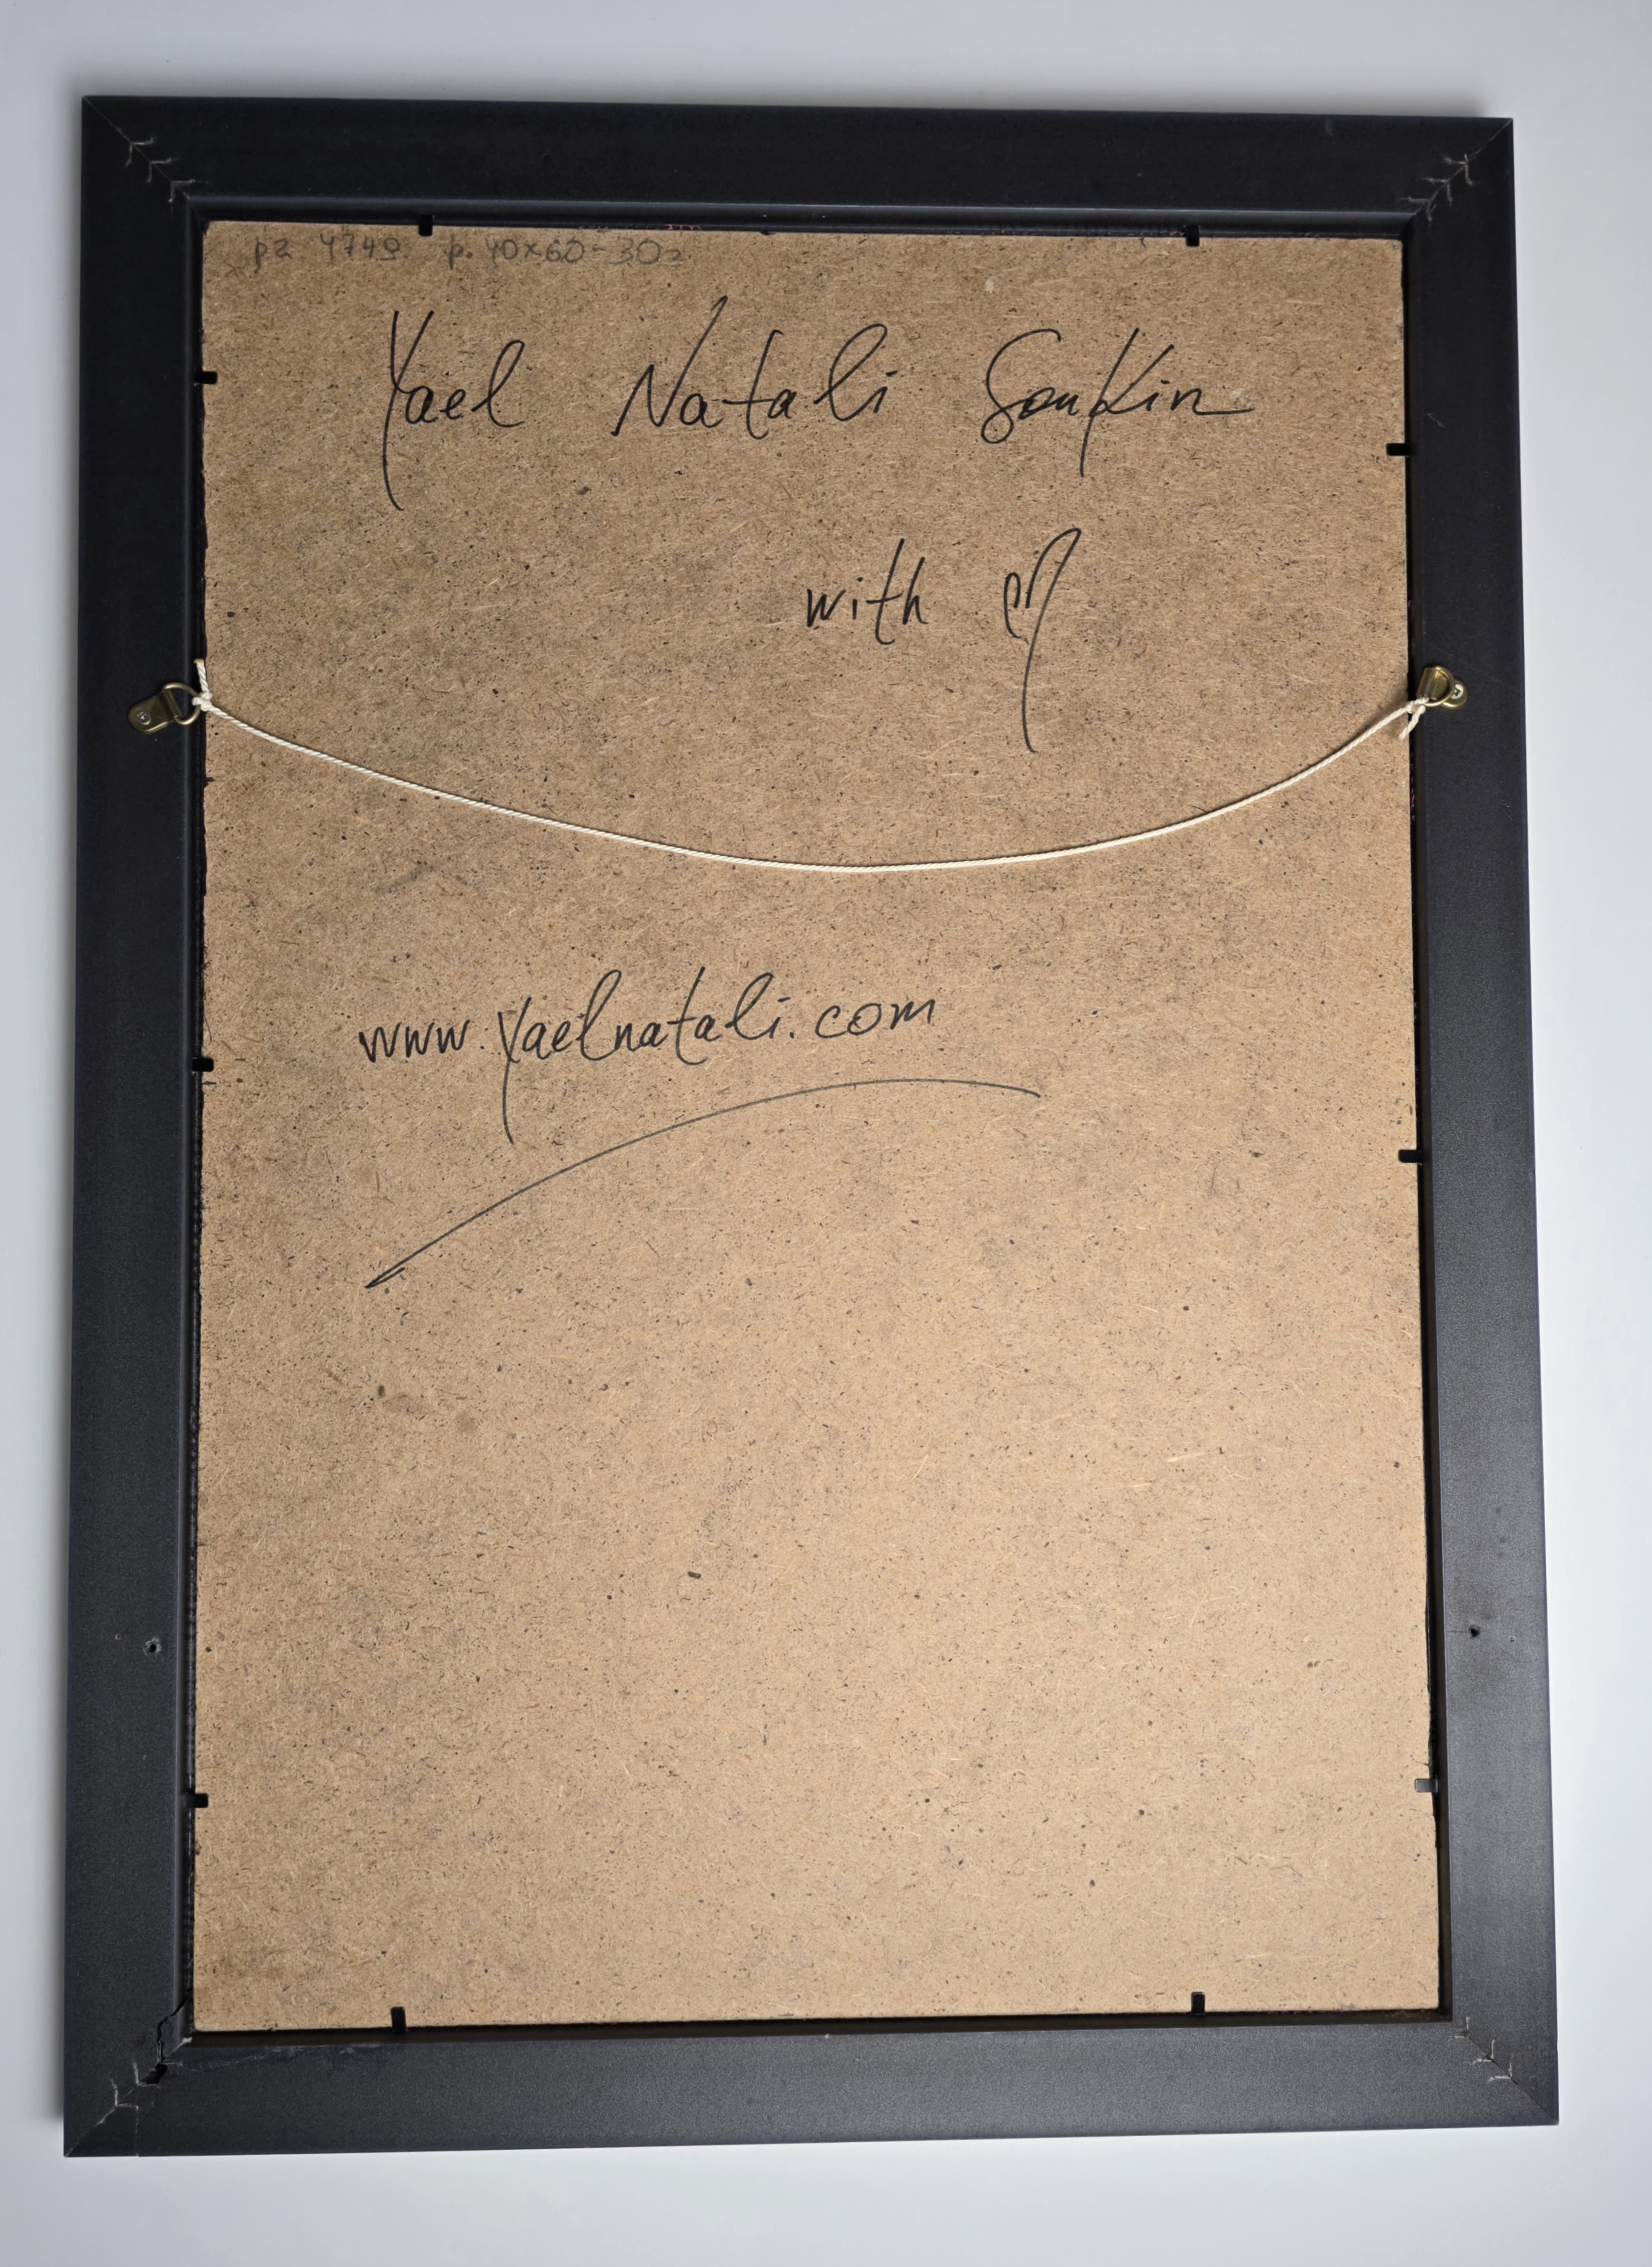 p. 40x60-30
Yael Natali Sonkin
with
www.yaelnatali.com